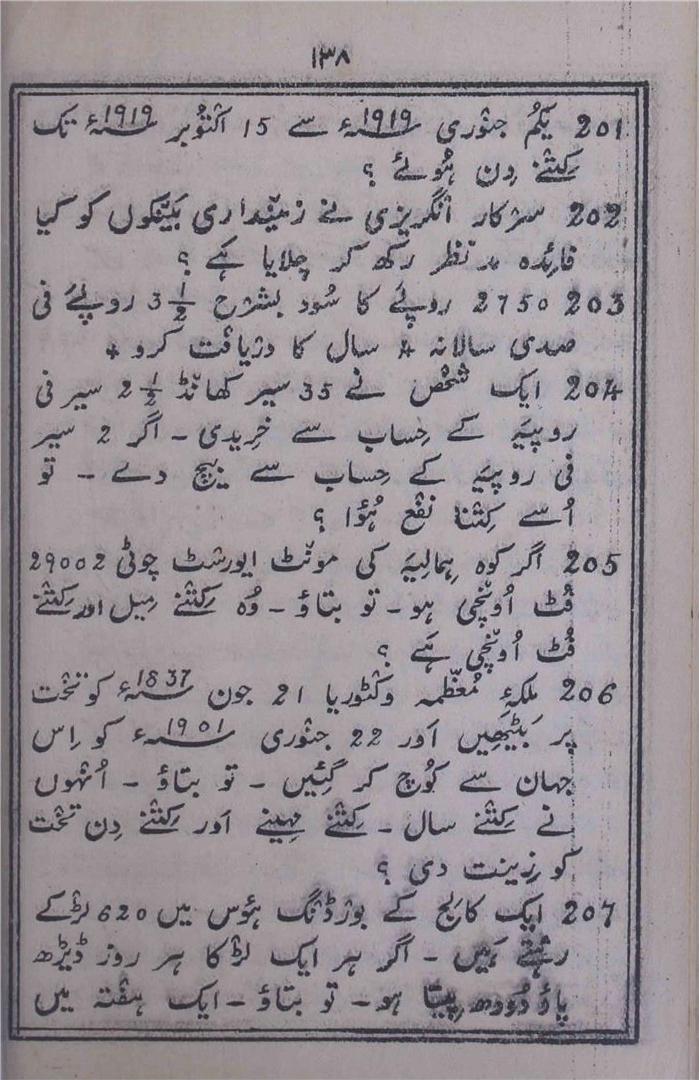 ۱۳۸
201 یکم جنوری 1919ء سے 15 اکتوبر 1919ء تک
کتنے دن ہوئے ؟
202 سرکار انگریزی نے زمینداری بینکوں کو کیا
فائدہ مدنظر رکھ کر چلایا ہے ؟
203 2750 روپے کا سود بشرح 3 1/2 روپے فی
صدی سالانہ 4 سال کا دریافت کرو +
204 ایک شخص نے 35 سیر کھانڈ 2 1/2 سیر فی
روپیہ کے حساب سے خریدی - اگر 2 سیر
فی روپیہ کے حساب سے بیچ دے - تو
اُسے کتنا نفع ہُؤا ؟
205 اگر کوہ ہمالیہ کی مونٹ ایورسٹ چوٹی 29002
فٹ اونچی ہو - تو بتاؤ - وُہ کتنے میل اور کتنے
فُٹ اُونچی ہے ؟
206 ملکۂ مُعظّمہ وکٹوریا 21 جون 1837ء کو تخت
پر بیٹھیں اَور 22 جنوری 1901ء کو اِس
جہان سے کُوچ کر گئیں - تو بتاؤ - اُنہوں
نے کتنے سال - کتنے مہینے اَور کتنے دِن تخت
کو زینت دی ؟
207 ایک کالج کے بورڈنگ ہؤس میں 620 لڑکے
رہتے ہیں - اگر ہر ایک لڑکا ہر روز ڈیڑھ
پاؤ دُودھ پیتا ہو - تو بتاؤ - ایک ہفتہ میں